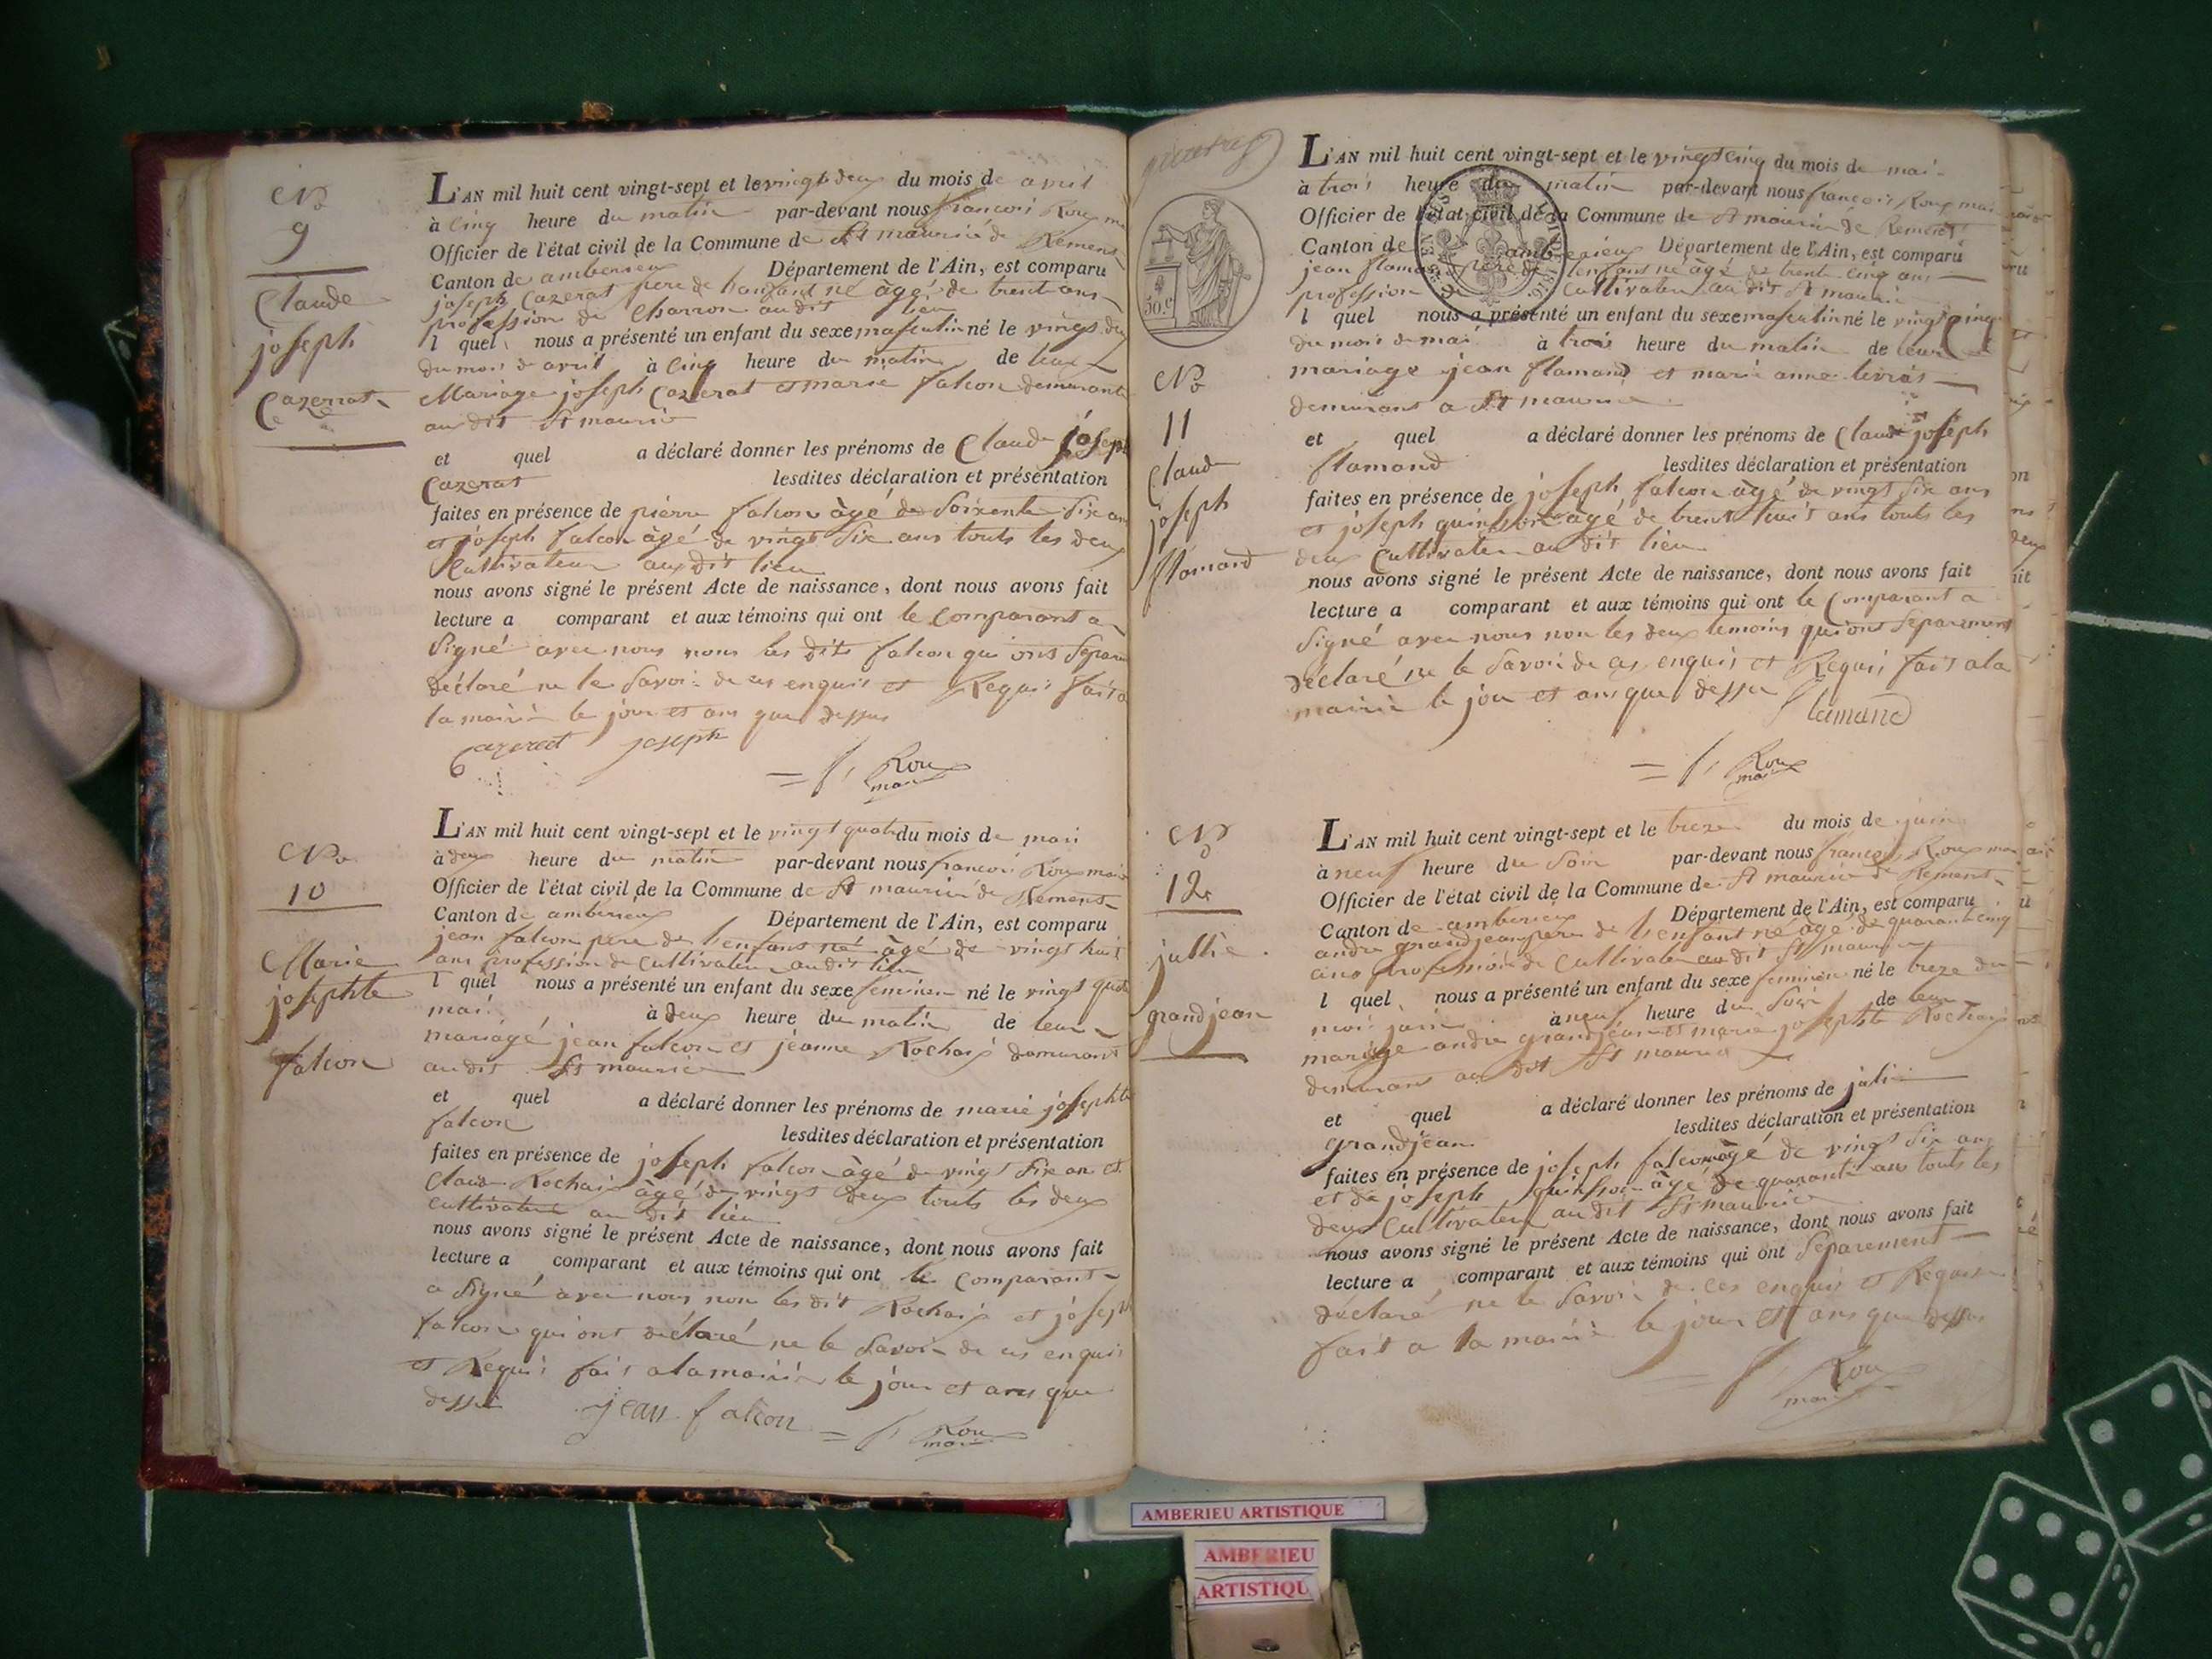 No
9
Claude
joseph
Cazerat
L'AN mil huit cent vingt-sept et le vingt deux du mois de avril
à cinq heure du matin par-devant nous francois Roux
Officier de l'état civil de la Commune de St maurice de Remens
Canton de amberieux Département de l'Ain, est comparu
joseph Cazerat pere de l'enfant né âgé de trent ans
profession de Charron au dit lieu
l quel nous a présenté un enfant du sexe masculin né le vingt deux
du mois de avril à cinq heure du matin de leur
Mariage joseph Cazerat et marie falcon demurant
au dit St maurice
et quel a déclaré donner les prénoms de Claude joseph
Cazerat lesdites déclaration et présentation
faites en présence de pierre falcon âgé de soixente six ans
et joseph falcon âgé de vingt six ans touts les deux
Cultivateur au dit lieu
nous avons signé le présent Acte de naissance, dont nous avons fait
lecture a comparant et aux témoins qui ont le comparant a
signé avec nous nous les dits falcon qui ont separe
déclaré ne le savoir de ces enquis et Requis fait a
la mairie le jour et ans que dessus
Cazerat joseph
= f, Roux
maire
No
10
Marie
josephte
falcon
L'AN mil huit cent vingt-sept et le vingt quatr du mois de mai
à deux heure du matin par-devant nous francois Roux maire
Officier de l'état civil de la Commune de St maurice de Remens
Canton de amberieux Département de l'Ain, est comparu
jean falcon pere de l'enfant né âgé de vingt huit
ans profession de Cultivateur au dit lieu
l quel nous a présenté un enfant du sexe feminin né le vingt quatr
mai à deux heure du matin de leur
mariage jean falcon et jeanne Rochaix demurant
au dit St maurice
et quel a déclaré donner les prénoms de marie josephte
falcon lesdites déclaration et présentation
faites en présence de joseph falcon âgé de vingt six ans et
Claude Rochaix âgé de vingt deux touts les deux
cultivateur au dit lieu
nous avons signé le présent Acte de naissance, dont nous avons fait
lecture a comparant et aux témoins qui ont le comparant
a signé avec nous non les dit Rochaix et joseph
falcon qui ont déclaré ne le savoir de ces enquis
et Requis fait a la mairie le jour et ans que
dessus jean falcon = f, Roux
maire
50.c
No
11
Claude
joseph
flamand
L'AN mil huit cent vingt-sept et le vingt cinq du mois de mai
à trois heure du matin par-devant nous francois Roux maire
Officier de l'état civil de la Commune de St maurice de Remens
Canton de amberieux Département de l'Ain, est comparu
jean flamand pere de l'enfant né âgé de trent cinq ans
profession de Cultivateur au dit St maurice
l quel nous a présenté un enfant du sexe masculin né le vingt cinq
du mois de mai à trois heure du matin de leur
mariage jean flamand et marie anne livras
demurant a St maurice
et quel a déclaré donner les prénoms de Claude joseph
flamand lesdites déclaration et présentation
faites en présence de joseph falcon âgé de vingt six ans
et joseph quinson âgé de trent huit ans touts les
deux Cultivateur au dit lieu
nous avons signé le présent Acte de naissance, dont nous avons fait
lecture a comparant et aux témoins qui ont le Comparant a
signé avec nous non les deux temoins qui ont separement
déclaré ne le savoir de ces enquis et Requis fait a la
mairie le jour et ans que dessu flamand
= f, Roux
maire
No
12
jullie
grandjean
L'AN mil huit cent vingt-sept et le treze du mois de juin
à neuf heure du soir par-devant nous francois Roux maire
Officier de l'état civil de la Commune de St maurice de Remens
Canton de amberieux Département de l'Ain, est comparu
andre grandjean pere de l'enfant né âgé de quarant cinq
ans profession de Cultivateur au dit St maurice
l quel nous a présenté un enfant du sexe feminin né le treze du
mois juin à neuf heure du soir de leur
mariage andre grandjean et marie josephte Rochaix
demurant au dit St maurice
et quel a déclaré donner les prénoms de juli
grandjean lesdites déclaration et présentation
faites en présence de joseph falcon âgé de vingt six ans
et de joseph quinson âgé de quarante ans touts les
deux Cultivateur au dit St maurice
nous avons signé le présent Acte de naissance, dont nous avons fait
lecture a comparant et aux témoins qui ont separement
déclaré ne le savoir de ces enquis et Requis
fait a la mairie le jour et ans que dessus
f, Roux
maire
AMBERIEU ARTISTIQUE
AMBERIEU
ARTISTIQU